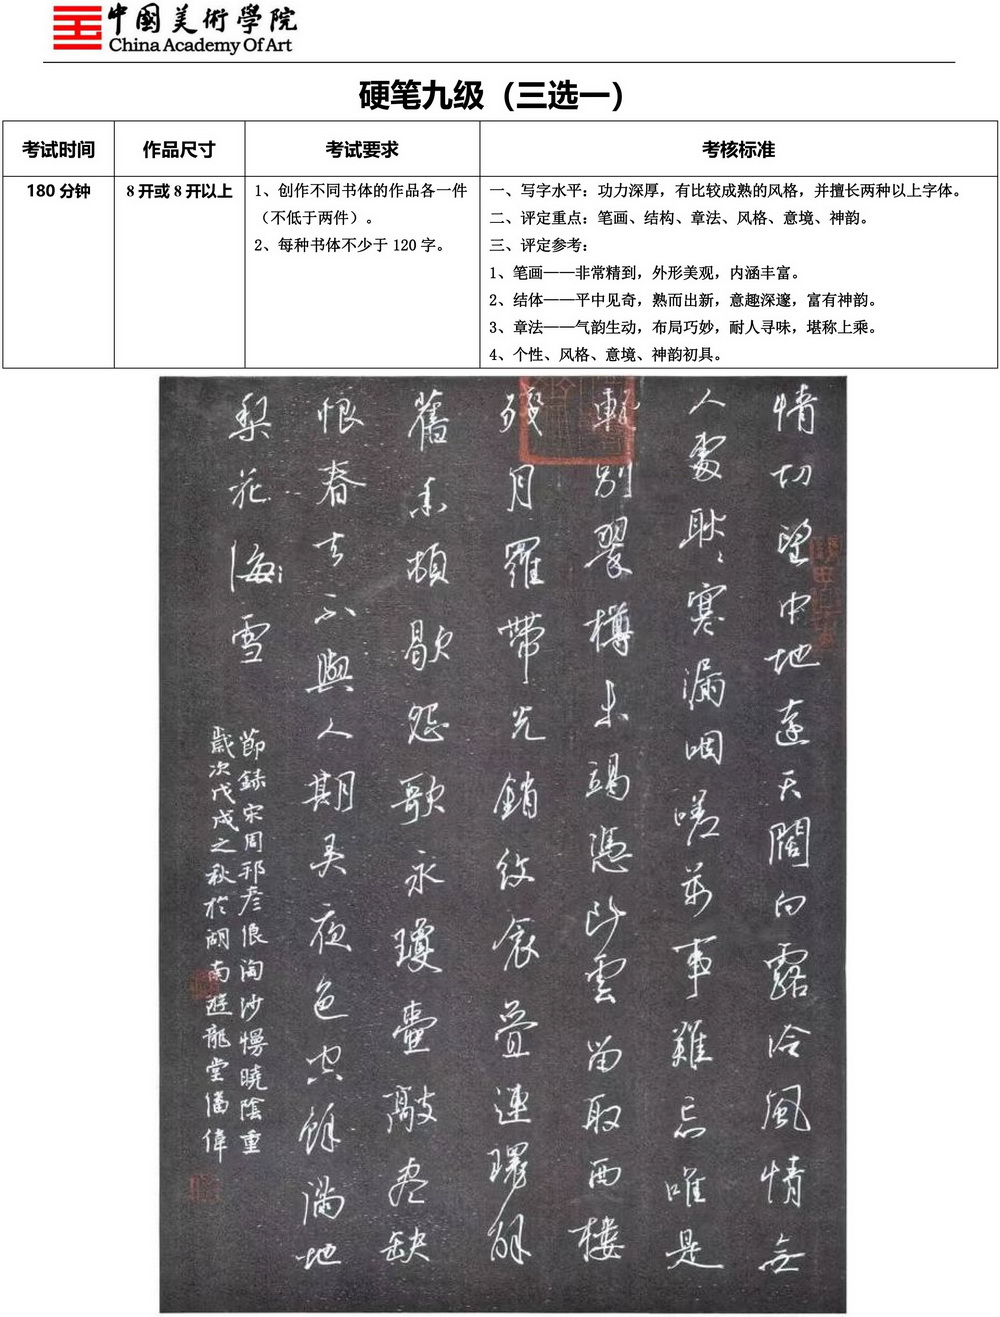 中國美術學院
China Academy Of Art
硬笔九级（三选一）
考试时间 作品尺寸 考试要求 考核标准
180 分钟
8 开或 8 开以上
1、创作不同书体的作品各一件
（不低于两件）。
2、每种书体不少于 120 字。
一、写字水平：功力深厚，有比较成熟的风格，并擅长两种以上字体。
二、评定重点：笔画、结构、章法、风格、意境、神韵。
三、评定参考：
1、笔画——非常精到，外形美观，内涵丰富。
2、结体——平中见奇，熟而出新，意趣深邃，富有神韵。
3、章法——气韵生动，布局巧妙，耐人寻味，堪称上乘。
4、个性、风格、意境、神韵初具。
情切望中地遠天闊向露冷風情無
人處耿〻寒漏咽嗟萬事難忘唯是
輕別翠樽未竭憑斷雲留取西樓
殘月羅帶光銷紋衾疊連環解
舊香頓歇怨歌永瓊壺敲盡缺
恨春去不與人期弄夜色空餘滿地
梨花海雪
節録宋周邦彦浪淘沙慢曉陰重
歲次戊戌之秋於湖南遊龍堂潘偉